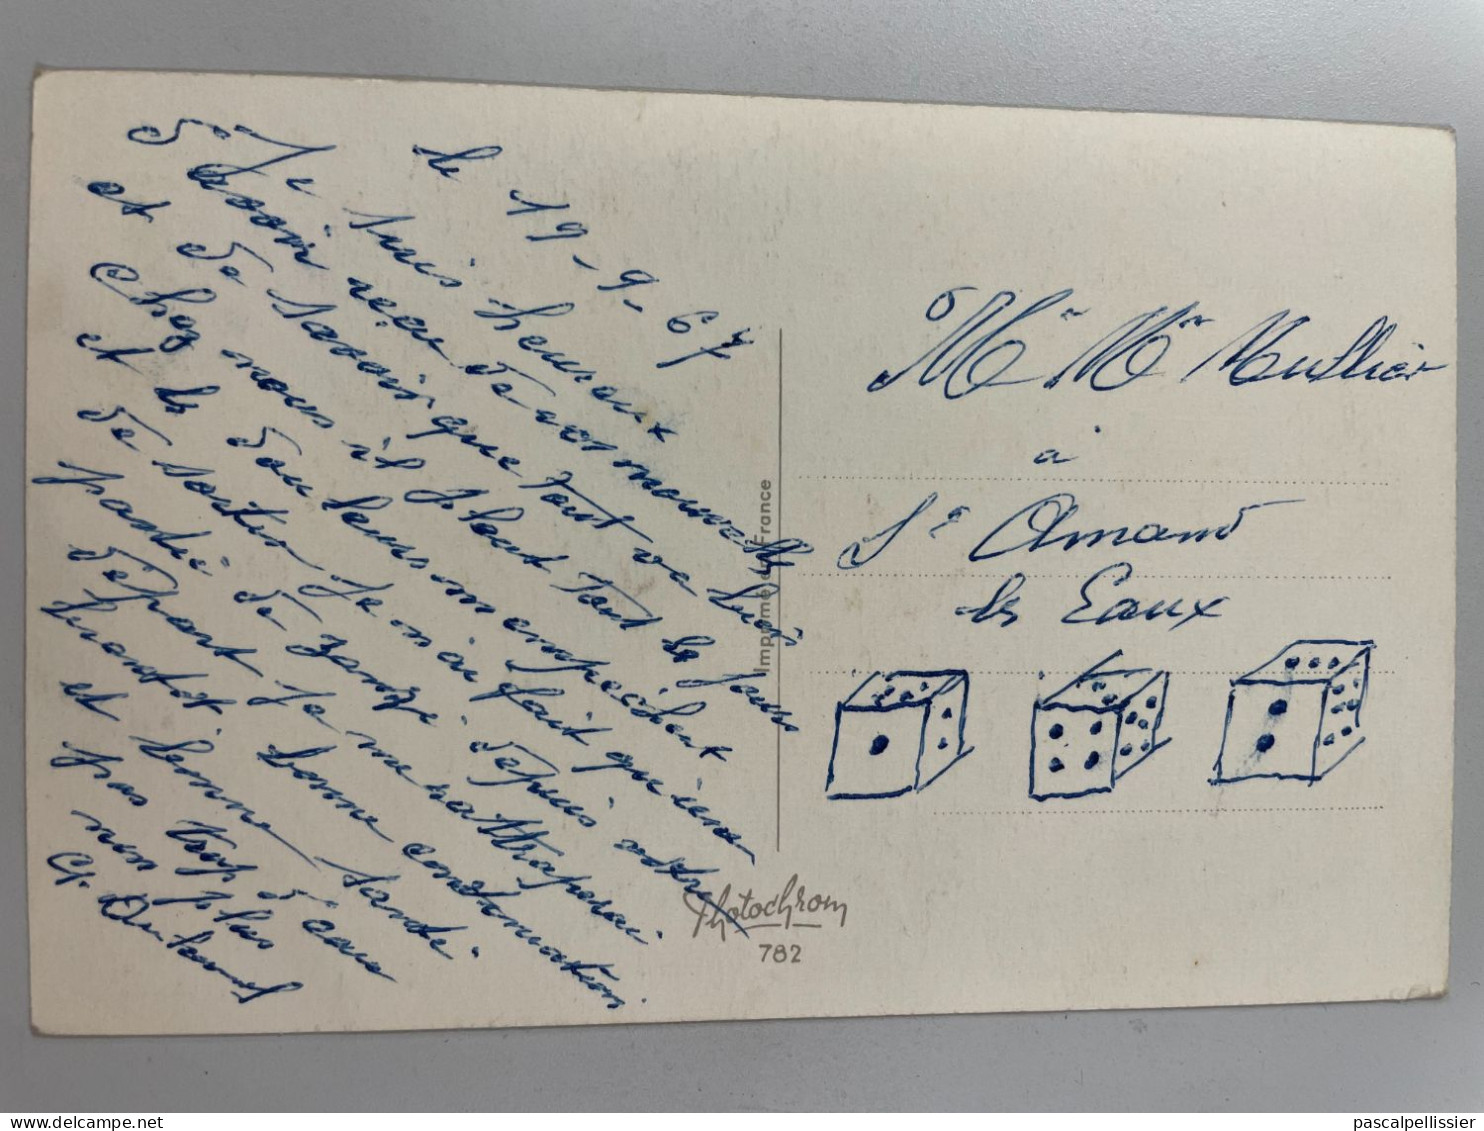 le 19-9-67
Je suis heureux
d'avoir reçu de vos nouvelles
et de savoir que tout va bien
chez nous il pleut tous les jours
et les douleurs m'empêchent
de sortir je n'ai fait qu'une
partie de zanzi depuis votre
départ je me rattraperai
bonne continuation
et bonne santé
pas trop d'eau
non plus
G.
Mr Mme Mullier
à
St Amand
les Eaux
Imprimé en France
Photochrom
782
www.delcampe.net
pascalpellissier